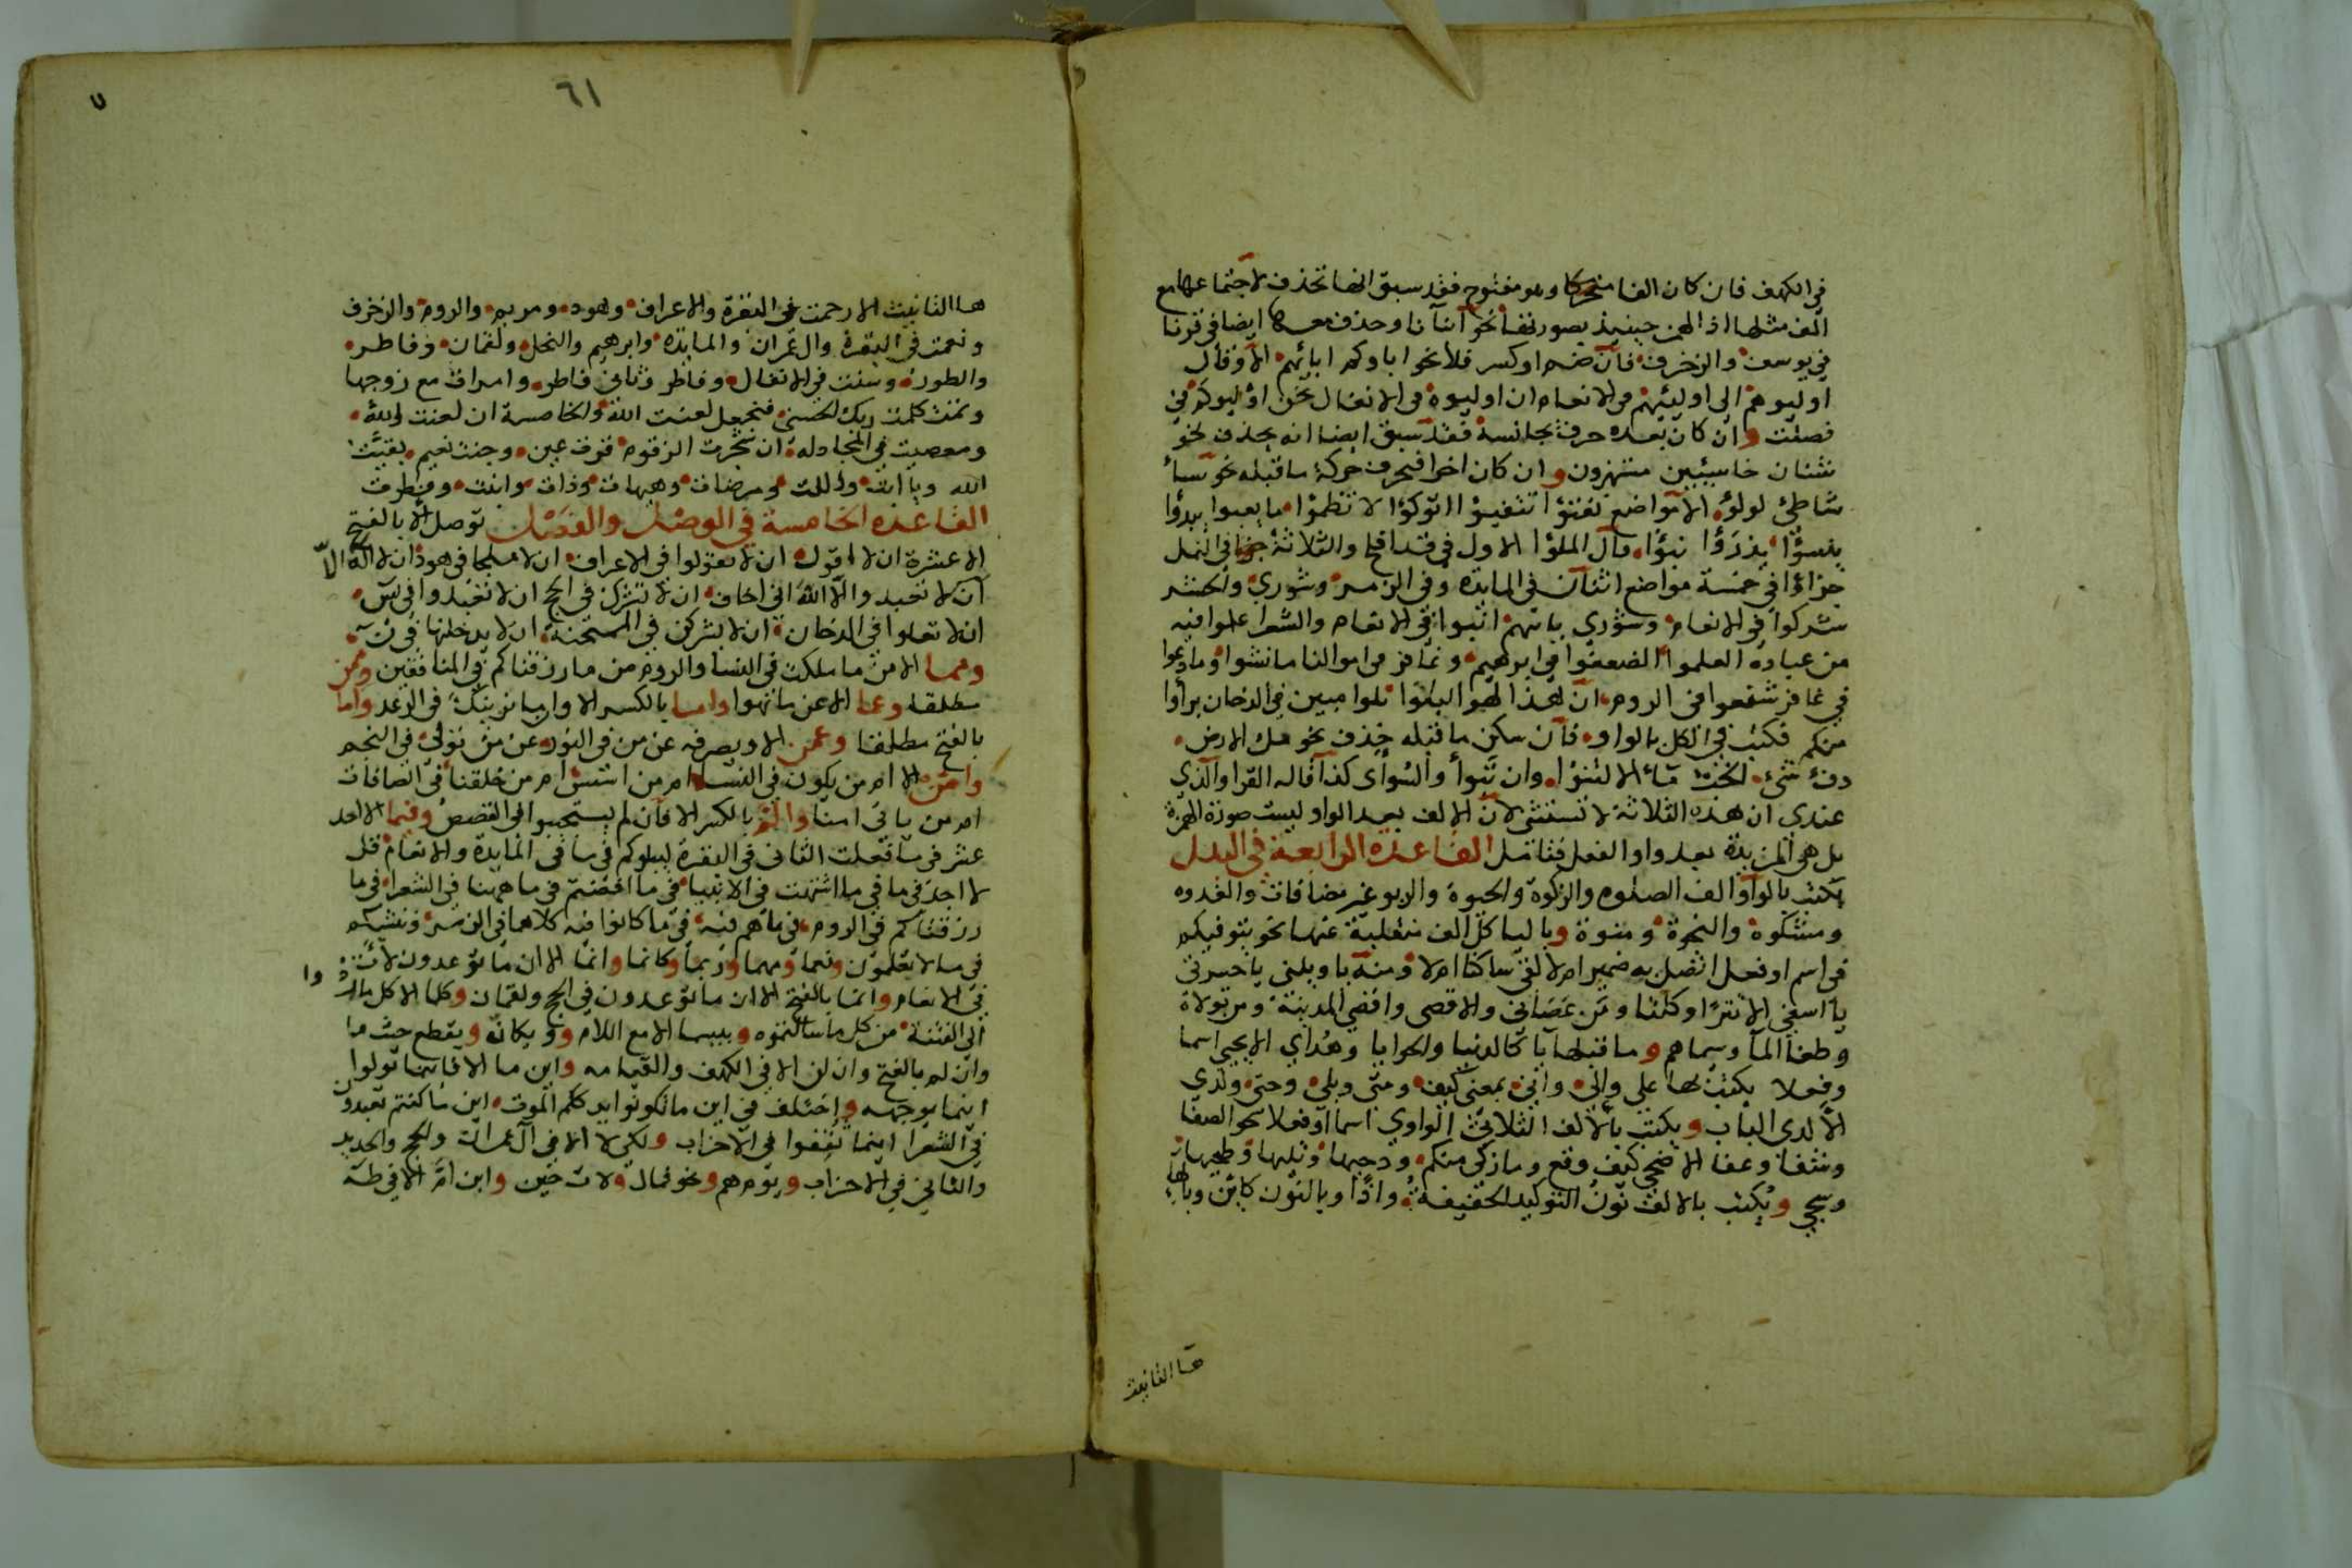 في الكهف فان كان الفا متحركا وهو مفتوح فقد سبق انها تحذف لاجتماعها مع
الف مثلها اذ الهمز حينئذ بصورتها نحو اانا وحذف معها ايضا في قرنا
في يوسف والزخرف فان ضم او كسر فلا نحو اباوكم ابائهم الا وقال
اوليوهم الى اوليئهم في الانعام ان اوليوه في الانفال نحن اوليوكم في
فصلت وان كان بعده حرف يجانسه فقد سبق ايضا انه يحذف نحو
شنان خاسئين مستهزون وان كان اخرا فبحرف حركة ما قبله نحو سبأ
شاطئ لولؤ الا مواضع تفتؤا تتفيؤا اتوكؤا لا تظمؤا ما يعبوا يبدؤا
ينشؤا يذرؤا نبؤا قال الملؤا الاول في قد افلح والثلاثة في النمل
جزاؤا في خمسة مواضع اثنان في المايدة وفي الزمر وشوري والحشر
شركوا في الانعام وشوري ياتيهم انبوا في الانعام والشعرا علموا فيه
من عباده العلموا الضعفوا في ابرهيم وغافر في اموالنا ما نشوا وما دعوا
في غافر شفعوا في الروم ان هذا لهو البلوا بلوا مبين في الدخان براوا
منكم فكتب في الكل بالواو فان سكن ما قبله حذف نحو ملء الارض
دفء شيء الخبء ماء الا لتنوا وان تبوأ والسوأى كذا قاله القرا والذي
عندي ان هذه الثلاثة لا تستثنى لان الالف بعد الواو ليست صورة الهمزة
بل هي المزيدة بعد واو الفعل فتامل القاعدة الرابعة في البدل
يكتب بالواو الف الصلوة والزكوة والحيوة والربو غير مضافات والغدوه
ومشكوة والنجوة ومنوة وباليا كل الف منقلبة عنها نحو يتوفيكم
في اسم او فعل اتصل به ضمير ام لا لقي ساكنا ام لا ومنه يا ويلتى يا حسرتى
يا اسفى الا تترا وكلتا ومن عصاني والاقصى واقصى المدينة ومن تولاه
وطغا الما وسيماهم وما قبلها يا كالدنيا والحوايا وهداي الا يحيى اسما
وفعلا يكتب بها على والى وانى بمعنى كيف ومتى وبلى وحتى ولدى
الا لدى الباب ويكتب بالالف الثلاثي الواوي اسما او فعلا نحو الصفا
وشفا وعفا الا ضحى كيف وقع وما زكى منكم ودحيها وتليها وطحيها
وسجى ويكتب بالالف نون التوكيد الخفيفة واذا وبالنون كاين وبالها
ها التانيث
٦١
ها التانيث الا رحمت في البقرة والاعراف وهود ومريم والروم والزخرف
ونعمت في البقرة وال عمران والمايدة وابرهيم والنحل ولقمان وفاطر
والطور وسنت في الانفال وفاطر وثاني غافر وامرات مع زوجها
وتمت كلمت ربك الحسنى فنجعل لعنت الله والخامسة ان لعنت الله
ومعصيت في المجادلة ان شجرت الزقوم قرت عين وجنت نعيم بقيت
الله ويا ابت واللت ومرضات وهيهات وذات وابنت وفطرت
القاعدة الخامسة في الوصل والفصل توصل الا بالفتح
الا عشرة ان لا اقول ان لا تقولوا في الاعراف ان لا ملجا في هود ان لا اله الا
ان لا تعبدوا الا الله اني اخاف ان لا تشرك في الحج ان لا تعبدوا في يس
ان لا تعلوا في الدخان ان لا يشركن في الممتحنة ان لا يدخلنها في ن
ومما الا من ما ملكت في النسا والروم من ما رزقناكم في المنافقين وممن
مطلقا وعما الا عن ما نهوا واما بالكسر الا وان ما نرينك في الرعد واما
بالفتح مطلقا وعمن الا ويصرفه عن من في النور عن من تولى في النجم
وامن الا ام من يكون في النسا ام من اسس ام من خلقنا في الصافات
ام من ياتي امنا والم بالكسر الا فان لم يستجيبوا في القصص وفيما الا احد
عشر في ما فعلت الثاني في البقرة ليبلوكم في ما في المايدة والانعام قل
لا اجد في ما في ما اشتهت في الانبيا في ما افضتم في ما ههنا في الشعرا في ما
رزقناكم في الروم في ما هم فيه في ما كانوا فيه كلاهما في الزمر وننشئكم
في ما لا تعلمون ونعما ومهما وربما وكانما وانما الا ان ما توعدون لات
في الانعام وانما بالفتح الا ان ما توعدون في الحج ولقمان وكلما الا كل ما ردوا
الى الفتنة من كل ما سالتموه وبيسما الا مع اللام وويكانه ويقطع حيث ما
وان لم بالفتح وان لن الا في الكهف والقيامه واين ما الا فاينما تولوا
اينما يوجهه واختلف في اين ما تكونوا يدرككم الموت اين ما كنتم تعبدون
في الشعرا اينما ثقفوا في الاحزاب ولكي لا الا في ال عمران والحج والحديد
والثاني في الاحزاب ويوم هم ونحو فمال ولات حين وابن ام الا في طه